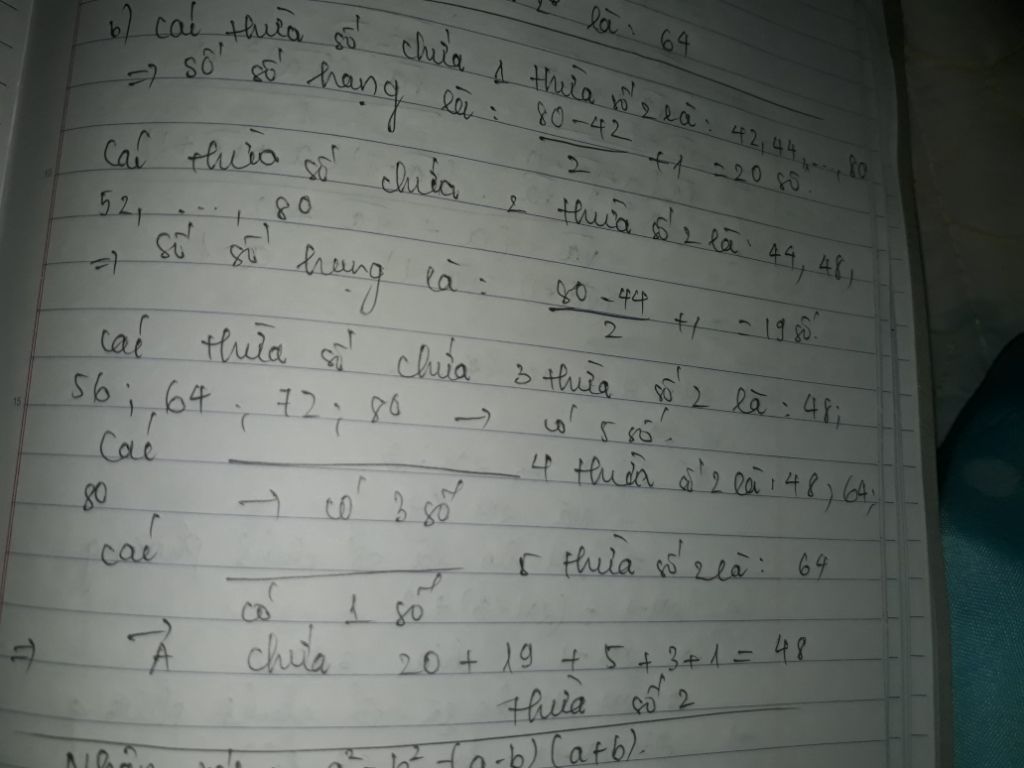 là: 64
b) Các thừa số chứa 1 thừa số 2 là: 42, 44, ..., 80
=> số số hạng là: \frac{80-42}{2} + 1 = 20 số.
Các thừa số chứa 2 thừa số 2 là: 44, 48,
52, ..., 80
=> số số hạng là: \frac{80-44}{2} + 1 = 19 số.
Các thừa số chứa 3 thừa số 2 là: 48;
56; 64; 72; 80 → có 5 số.
Các ——— 4 thừa số 2 là: 48; 64;
80 → có 3 số
Các ——— 5 thừa số 2 là: 64
có 1 số
=> A chứa 20 + 19 + 5 + 3 + 1 = 48
thừa số 2
a² - b² = (a-b)(a+b).